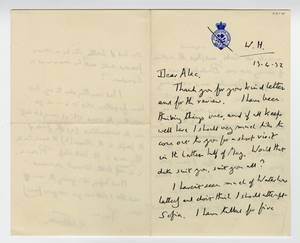 W.H.
13-6-32
Dear Alec.
Thank you for your kind letter
and for the review. I have been
thinking things over, and if all keeps
well here I should very much like to
come out to you for a short visit
in the latter half of Aug. Would that
date suit you, suit you all?
I haven't seen much of
lately and don't think I should attempt
Sofia. I have talked for five